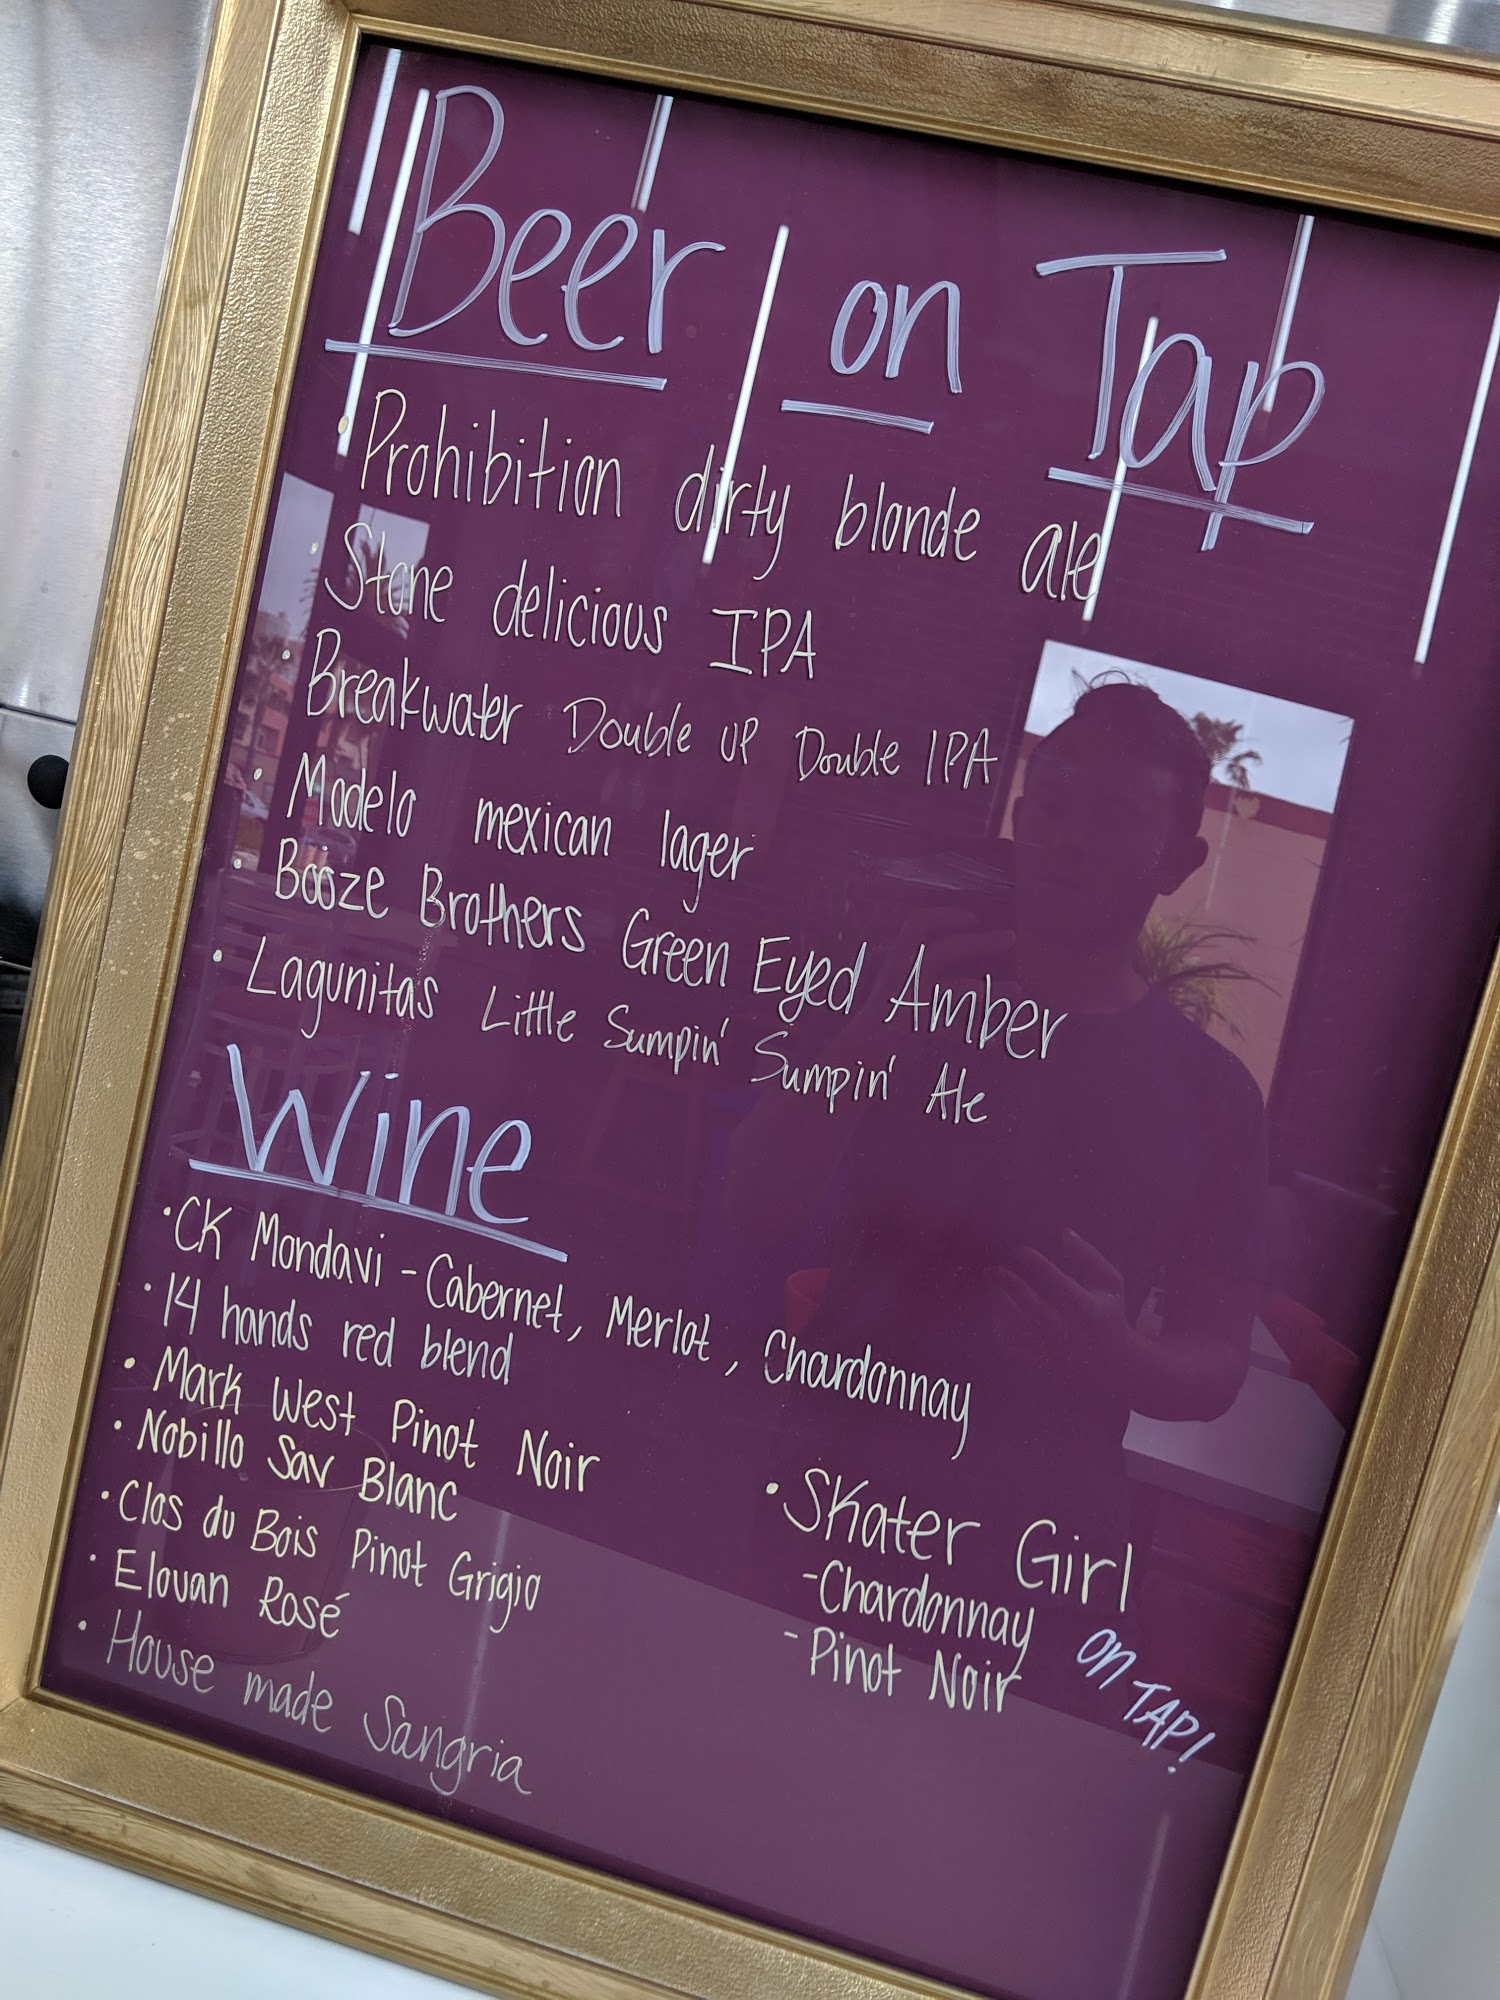 Beer on Tap
• Prohibition dirty blonde ale
• Stone delicious IPA
• Breakwater Double UP Double IPA
• Modelo mexican lager
• Booze Brothers Green Eyed Amber
• Lagunitas Little Sumpin' Sumpin' Ale
Wine
• CK Mondavi - Cabernet, Merlot, Chardonnay
• 14 hands red blend
• Mark West Pinot Noir
• Nobillo Sav Blanc
• Clos du Bois Pinot Grigio
• Elouan Rosé
• House made Sangria
• Skater Girl
- Chardonnay
- Pinot Noir
on TAP!